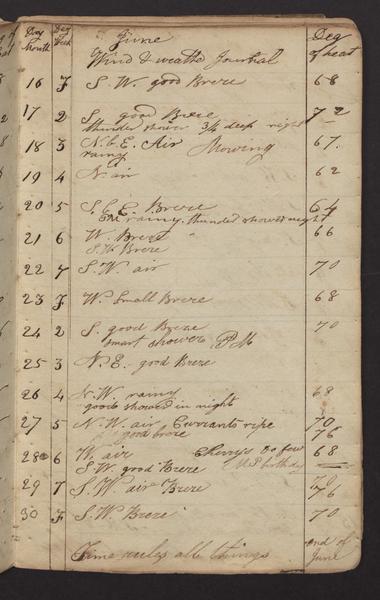 Day Month Day Week June Deg of heat
Wind & weather Journal
16 F S. W. good Breze 68
17 2 S. good Breze 72
thunder shower 3/4 deep night
18 3 N. b E. Air Mowing 67.
rainy
19 4 N. air 62
20 5 S. b E. Breze 64
rainy. thunder shower night
21 6 W. Breze 66
S. W. Breze
22 7 S. W. air 70
23 F W. small Breze 68
24 2 S. good Breze 70
smart shower P M
25 3 N. E. good Breze
26 4 N. W. rainy 68
good shower in night
27 5 N. W. air Currants ripe 70
good breze 76
28 6 W. air few 68
S W. good Breze birthday
29 7 S. W. air Breze 70
76
30 F S. W. Breze 70
Time rules all things end of June